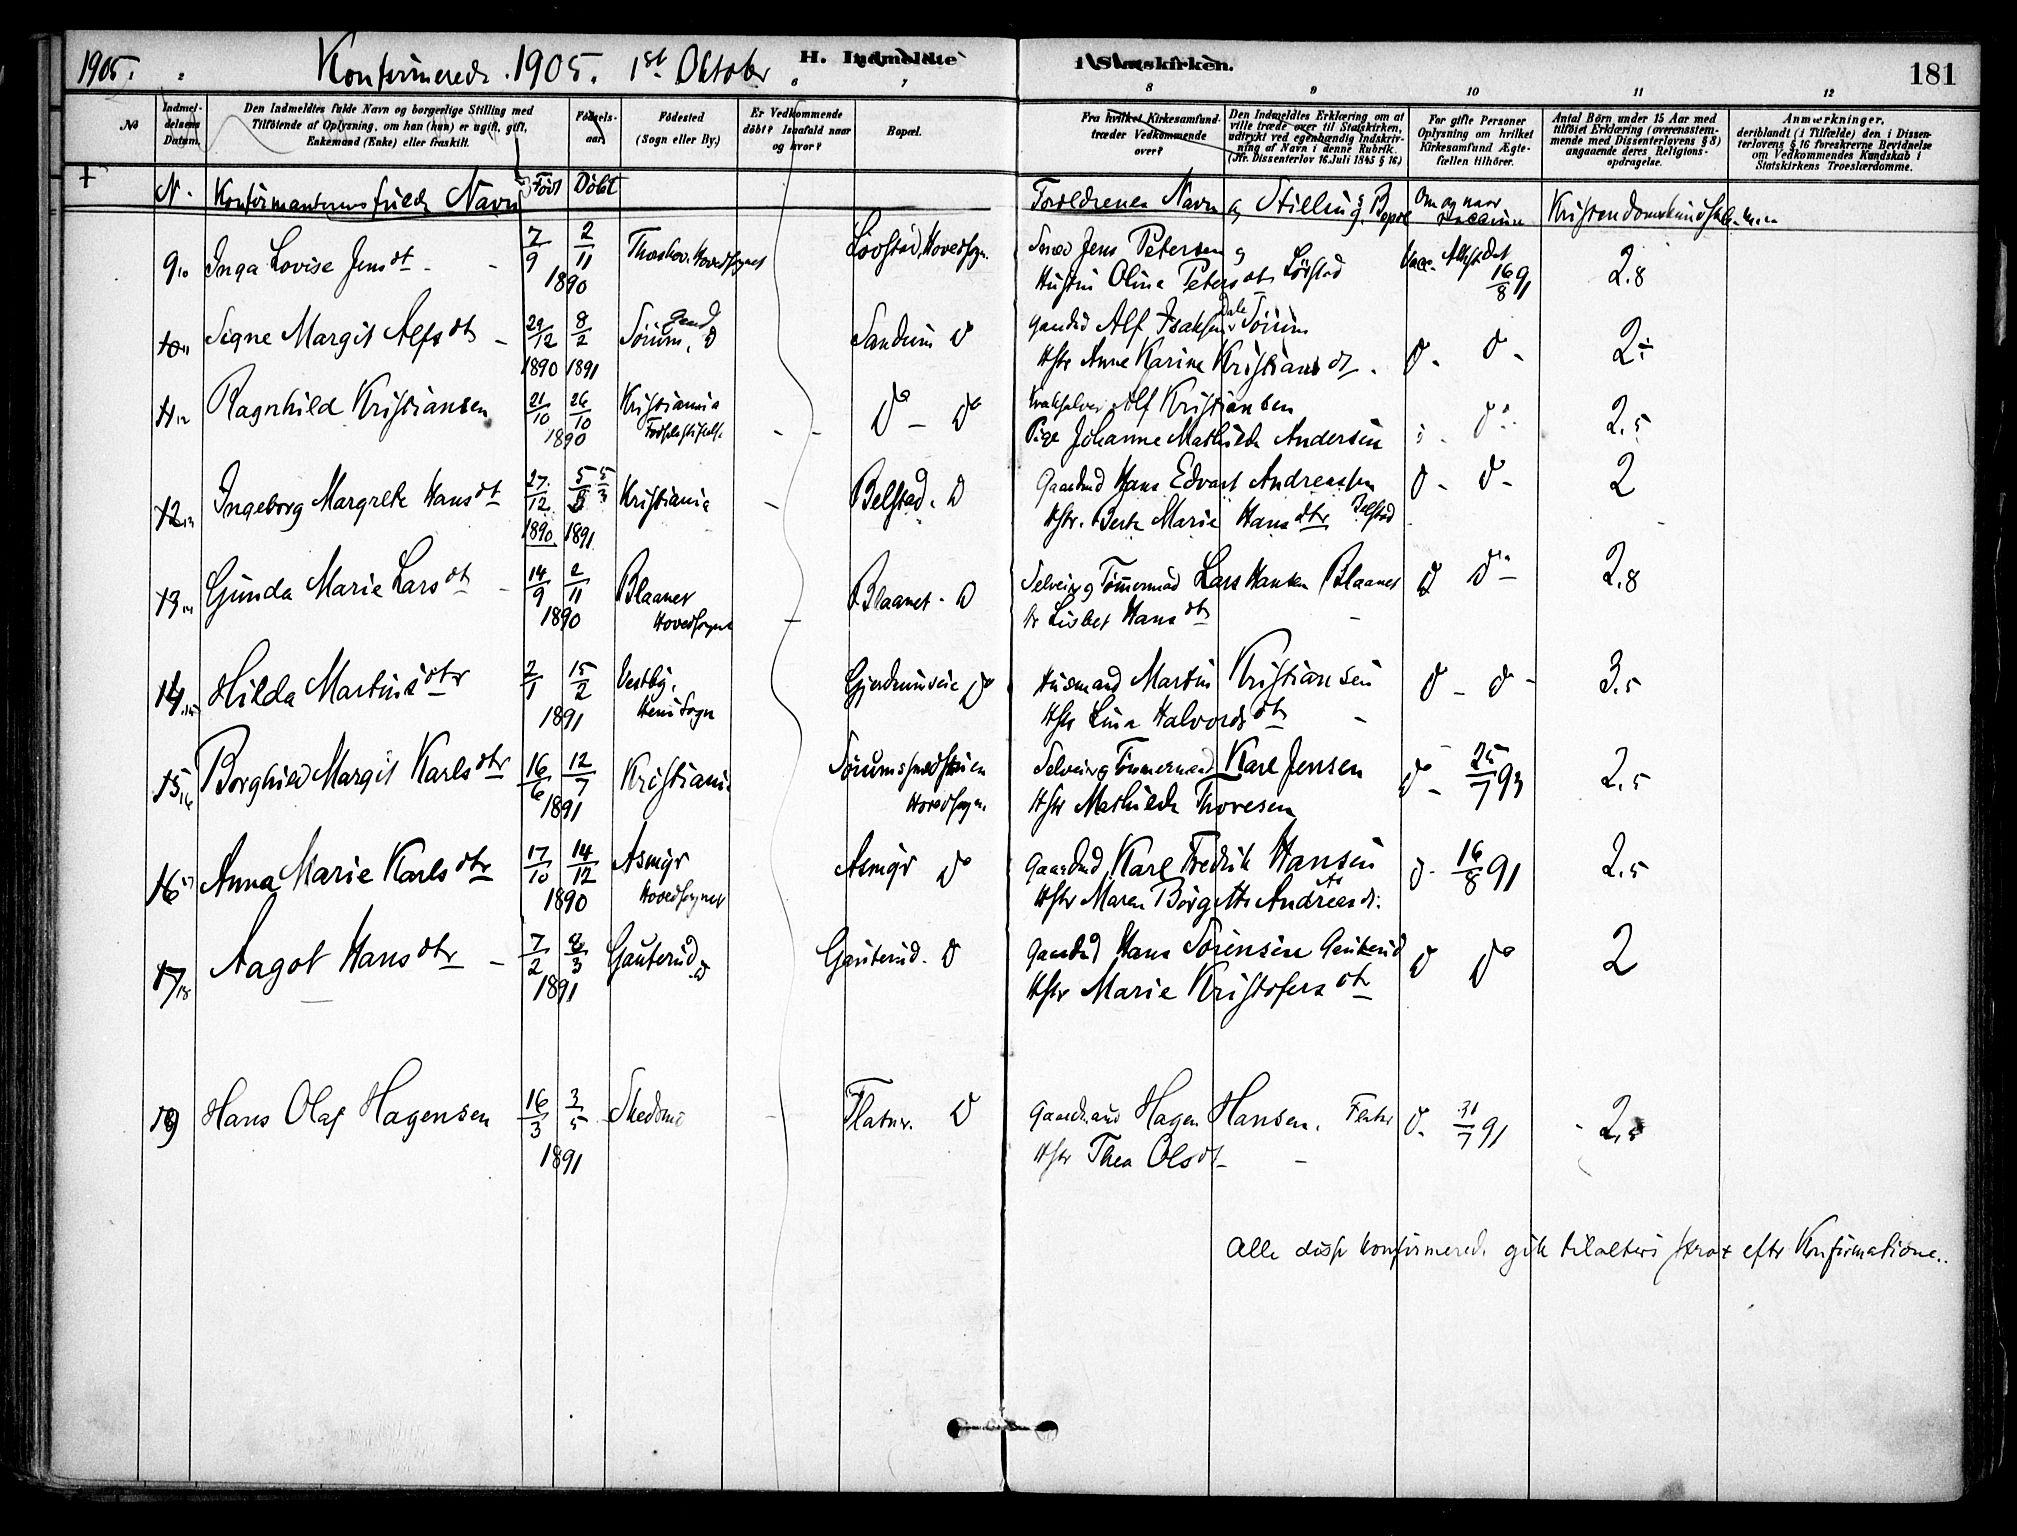 1905. Konfirmerede 1905. 1st Oktober H. Indmeldte i Statskirken. 181
6 7 8 9 10 11 12
No
Indmel-
delsens
Datum.
Den Indmeldtes fulde Navn og borgerlige Stilling med
Tilföiende af Oplysning, om han (hun) er ugift, gift,
Enkemand (Enke) eller fraskilt.
Födsels-
aar.
Födested
(Sogn eller By.)
Er Vedkommende
döbt? Isaafald naar
og hvor?
Bopæl.
Fra hvilket Kirkesamfund
træder Vedkommende
over?
Den Indmeldtes Erklæring om at
ville træde over til Statskirken,
udtrykt ved egenhændig Indskriv-
ning af Navn i denne Rubrik.
(Jfr. Dissenterlov 16 Juli 1845 § 16)
For gifte Personer
Oplysning om hvilket
Kirkesamfund Ægte-
fællen tilhörer.
Antal Börn under 15 Aar med
tilföid Erklæring (overensstem-
mende med Dissenterlovens § 8)
angaaende deres Religions-
opdragelse.
Anmærkninger,
deriblandt (i Tilfælde) den i Dissen-
terlovens § 16 foreskrevne Bevidnelse
om Vedkommendes Kundskab i
Statskirkens Troeslærdomme.
N. Konfirmanternes fulde Navn Født Döbt Foreldrenes Navn og Stilling og Bopæl Om og naar vaccin
9 10 Inga Lovise Jensdt 7/9 2/11 Hovedsognet Lovstad, Hovedsogn. Jens Petersen og Vacc. Attest dat
1890 Hustru Olina Petersdt Lövstad 16/8 91 2.8
10 11 Signe Margit Alfsdt 29/12 8/2 Sörum, D Sandum D Gaardbd Alf Isaksen Sörum
1890 1891 Hstr Anne Karine Kristiansdt. D - D - 2
11 12 Ragnhild Kristiansen 21/10 26/10 Kristiania Do - Do Alf Kristiansen
1890 Pige Johanne Mathilde Andersen D 2.5
12 13 Ingeborg Margrete Hansdt 27/12 5/3 5/3 Kristiania Belstad. D Gaardbd Hans Edvart Andreassen D - D - 2
1890 1891 Hstr. Berte Marie Hansdtr Belstad
13 14 Gunda Marie Larsdt 14/9 2/11 Blaaner Blaaner. D Selveier og Tömmermand Lars Hansen Blaaner D Do 2.8
1890 Hovedsognet Lisbet Hansdt
14 15 Hilda Martinsdtr 2/1 15/2 Vestby, Gjerdrumveie Do Husmand Martin Kristiansen D - D - 3.5
1891 Heni Sogn Hstr Lina Halvorsdt
15 16 Borghild Margit Karlsdtr 16/6 12/7 Kristiania Selveier og Tömmermand Karl Jensen Do - 25/7 93 2.5
1891 Hovedsogn. Hstr Mathilde Thoresen
16 17 Anna Marie Karlsdtr 17/10 14/12 Asmyr Asmyr Do Gaardbd Karl Fredrik Hansen D. 16/8 91 2.5
1890 Hovedsognet Hstr Maren Börgitte Andreasdt.
17 18 Aagot Hansdtr 7/2 8/3 Gauterud. D Gauterud. D Gaardbd Hans Sörensen Gauterud D Do 2
1891 Hstr Marie Kristofersdtr
19 Hans Olaf Hagensen 16/3 3/5 Skedsmo Flatner. D Gaardmand Hagen Hansen. Flatner D. 31/7 91 2.5
1891 Hstr Thea Olsdt
Alle disse konfirmerede gik tilalters strax efter Konfirmationen.